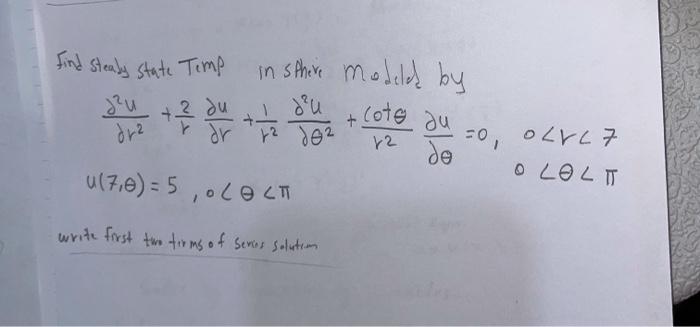 Find steady state Temp in sphere modeled by
∂²u/∂r² + 2/r ∂u/∂r + 1/r² ∂²u/∂θ² + cotθ/r² ∂u/∂θ = 0, 0<r<7
0<θ<π
u(7,θ) = 5, 0<θ<π
write first two terms of series solution